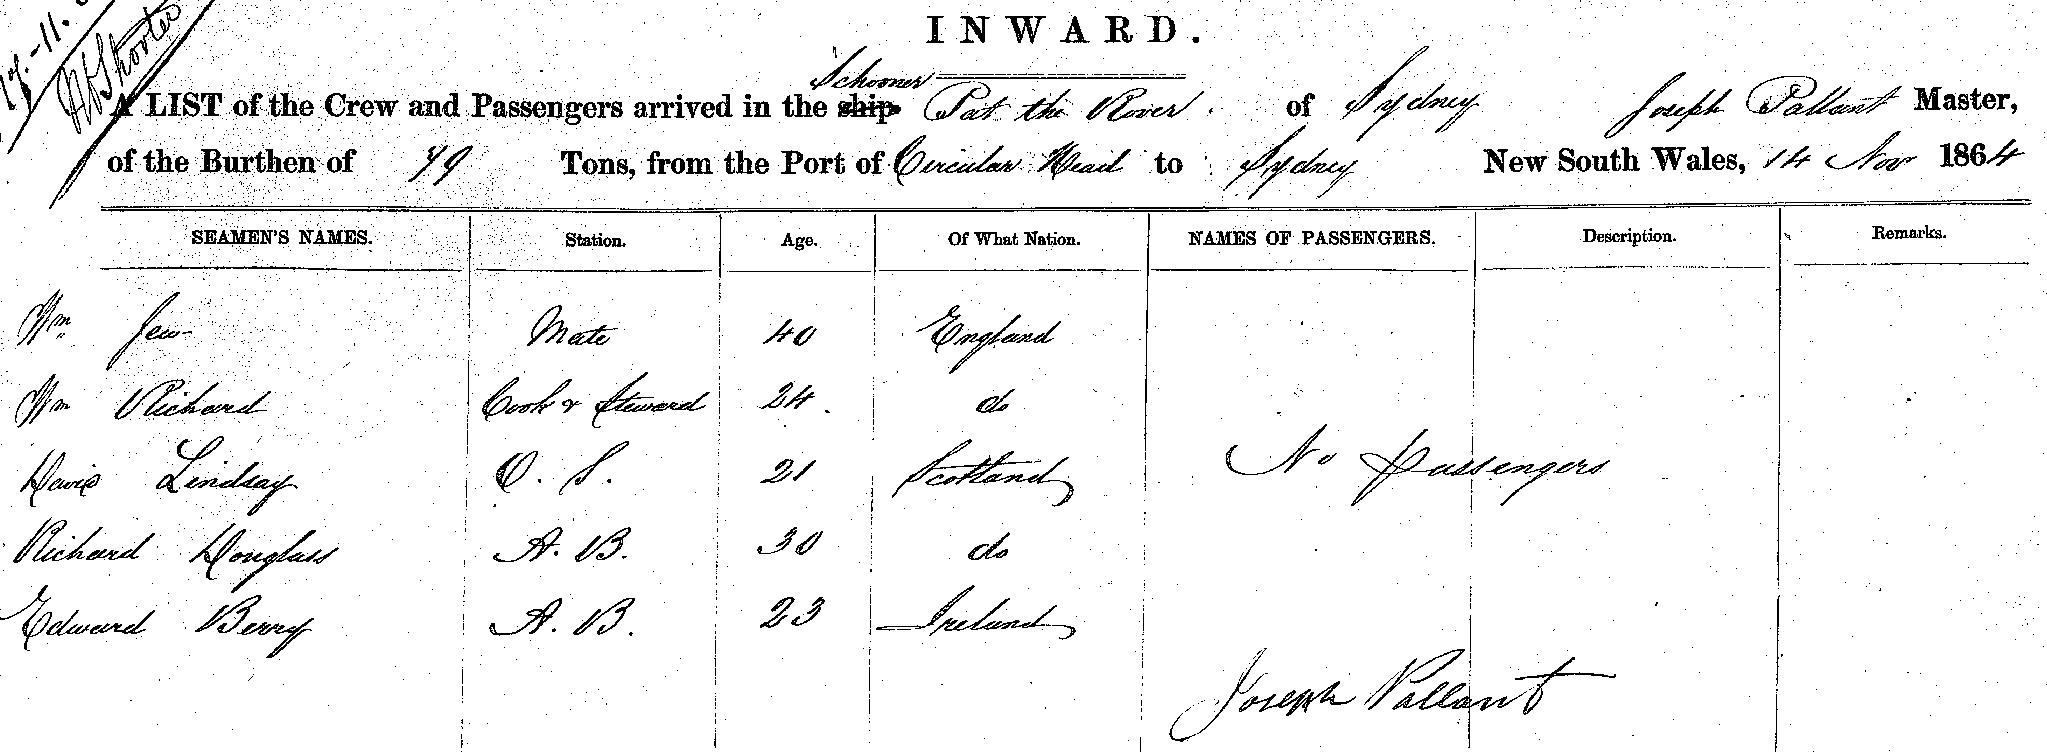 INWARD.
Schooner
A LIST of the Crew and Passengers arrived in the ship Pat the Rover. of Sydney Joseph Pallant Master,
of the Burthen of 49 Tons, from the Port of Circular Head to Sydney New South Wales, 14 Nov 1864
SEAMEN'S NAMES. Station. Age. Of What Nation. NAMES OF PASSENGERS. Description. Remarks.
Wm Jew Mate 40 England
Wm Richard Cook & Steward 24. do
David Lindsay O. S. 21 Scotland No Passengers
Richard Douglass A. B. 30 do
Edward Berry A. B. 23 Ireland
Joseph Pallant